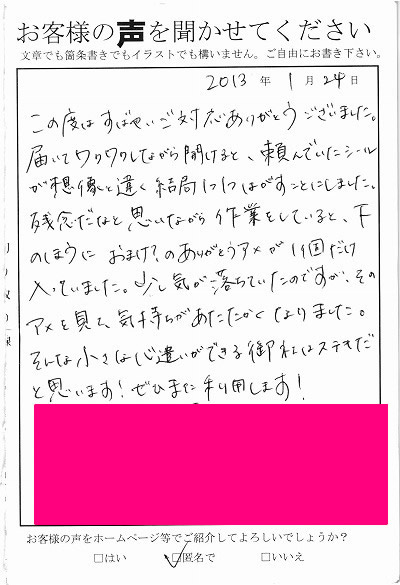 お客様の声を聞かせてください
文章でも箇条書きでもイラストでも構いません。ご自由にお書き下さい。
2013 年 1 月 24 日
この度はすばやいご対応ありがとうございました。
届いてワクワクしながら開けると、頼んでいたシール
が想像と違く結局1つ1つはがすことにしました。
残念だなと思いながら作業をしていると、下
のほうに おまけ?のありがとうアメが1個だけ
入っていました。少し気が落ちていたのですが、その
アメを見て、気持ちがあたたかくなりました。
そんな小さな心遣いができる御社はステキだ
と思います!ぜひまた利用します!
お客様の声をホームページ等でご紹介してよろしいでしょうか?
□はい ☑匿名で □いいえ